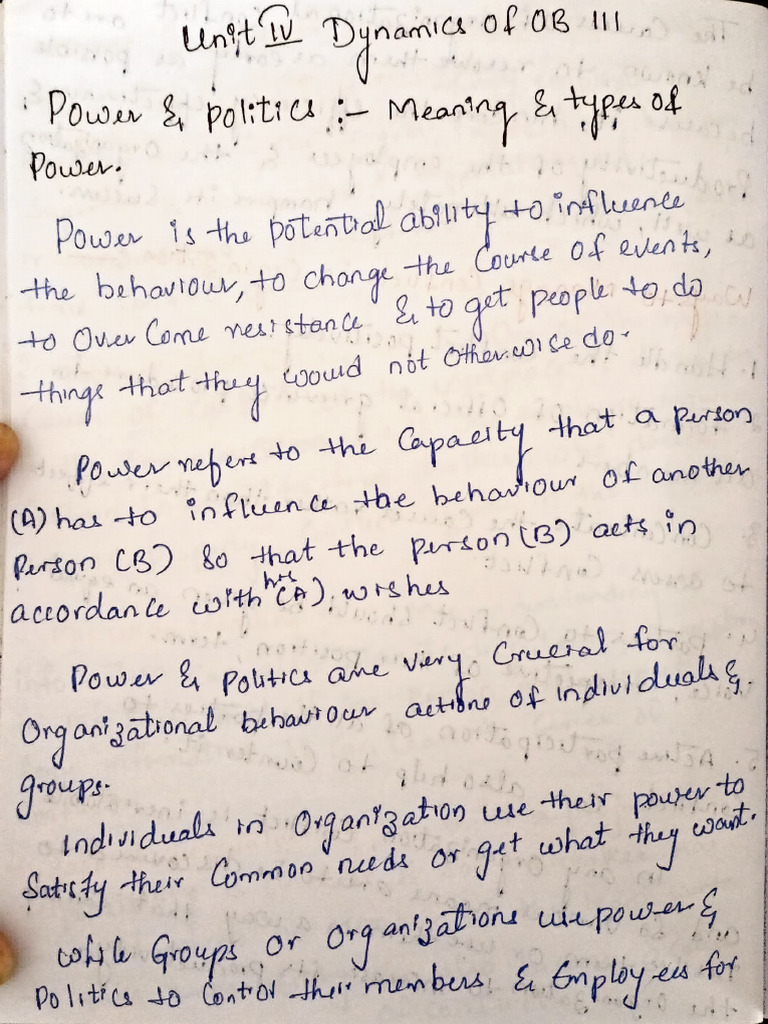 Unit IV Dynamics of OB III
Power & politics :- Meaning & types of
Power.
Power is the potential ability to influence
the behaviour, to change the Course of events,
to Over Come resistance & to get people to do
things that they would not otherwise do.
Power refers to the Capacity that a person
(A) has to influence the behaviour of another
Person (B) so that the person (B) acts in
accordance with his (A) wishes
Power & Politics are very Crucial for
Organizational behaviour actions of individuals &
groups.
Individuals in Organization use their power to
Satisfy their Common needs or get what they want.
while Groups or Organizations use power &
Politics to Control their members & Employees for